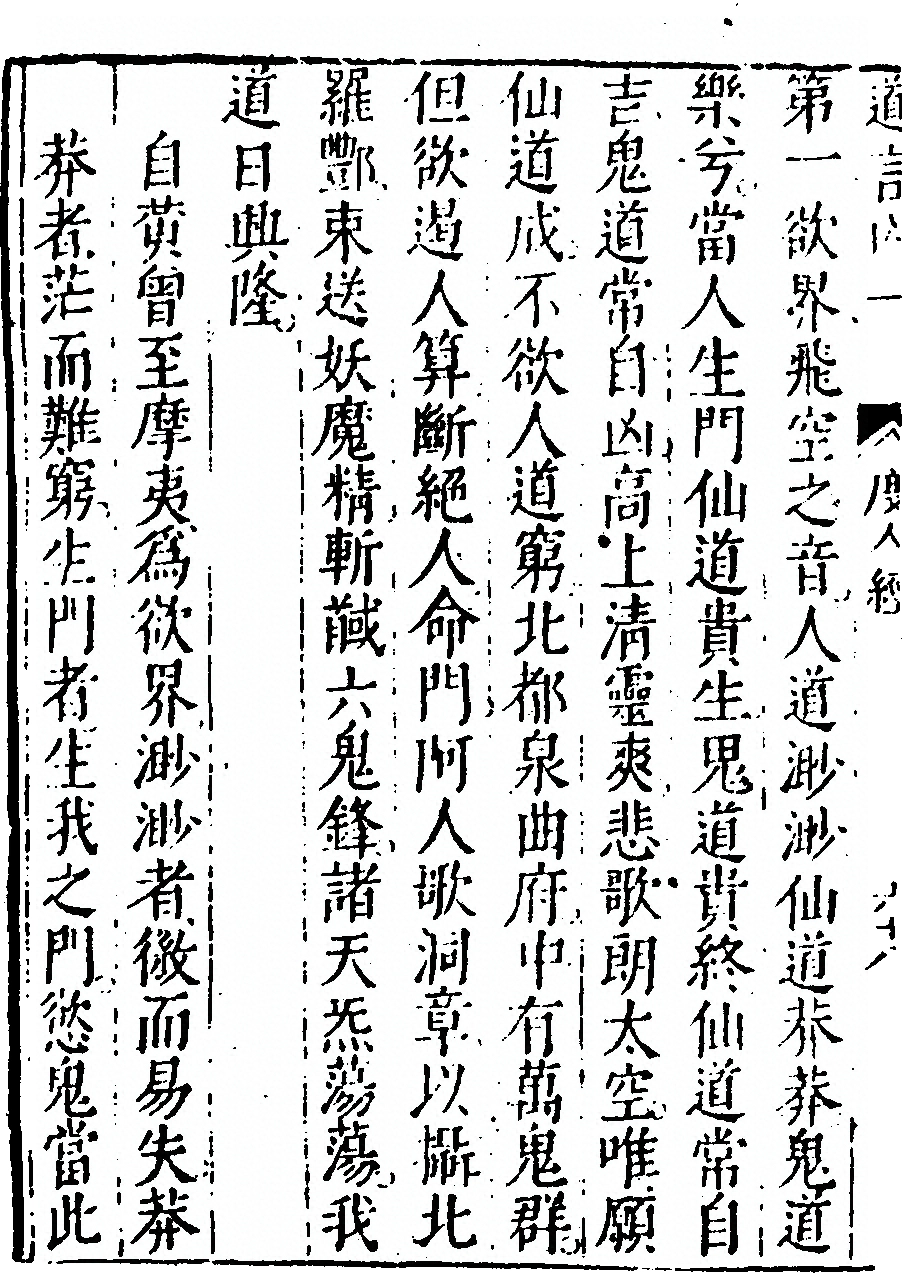 度人經
第一欲界飛空之音人道渺渺仙道莽莽鬼道
樂兮當人生門仙道貴生鬼道貴終仙道常自
吉鬼道常自凶高上清靈爽悲歌朗太空唯願
仙道成不欲人道窮北都泉曲府中有萬鬼群
但欲遏人算斷絕人命門阿人歌洞章以攝北
羅酆束送妖魔精斬馘六鬼鋒諸天炁蕩蕩我
道日興隆
自黃曾至摩夷爲欲界渺渺者微而易失莽
莽者茫而難窮生門者生我之門慾鬼當此